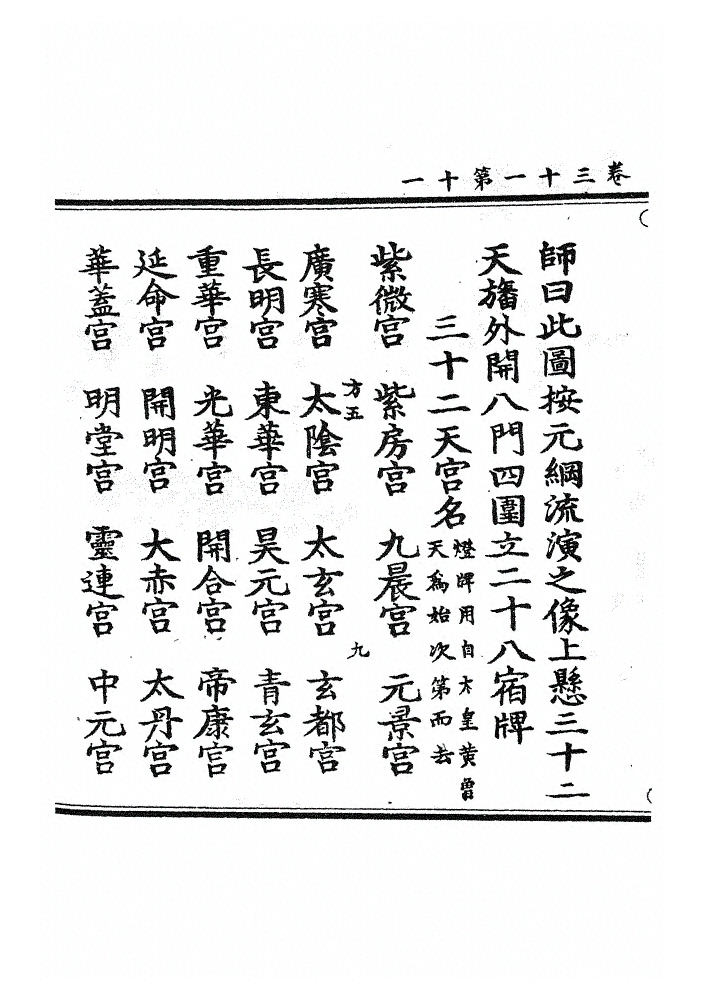 卷三十一第十一
師曰此圖按元綱流演之像上懸三十二
天旛外開八門四圍立二十八宿牌
三十二天宮名
燈牌用自太皇黄曾
天為始次第而去
紫微宮 紫房宮 九晨宮 元景宮
方五
九
廣寒宮 太陰宮 太玄宮 玄都宮
長明宮 東華宮 昊元宮 青玄宮
重華宮 光華宮 開合宮 帝康宮
延命宮 開明宮 大赤宮 太丹宮
華蓋宮 明堂宮 靈連宮 中元宮